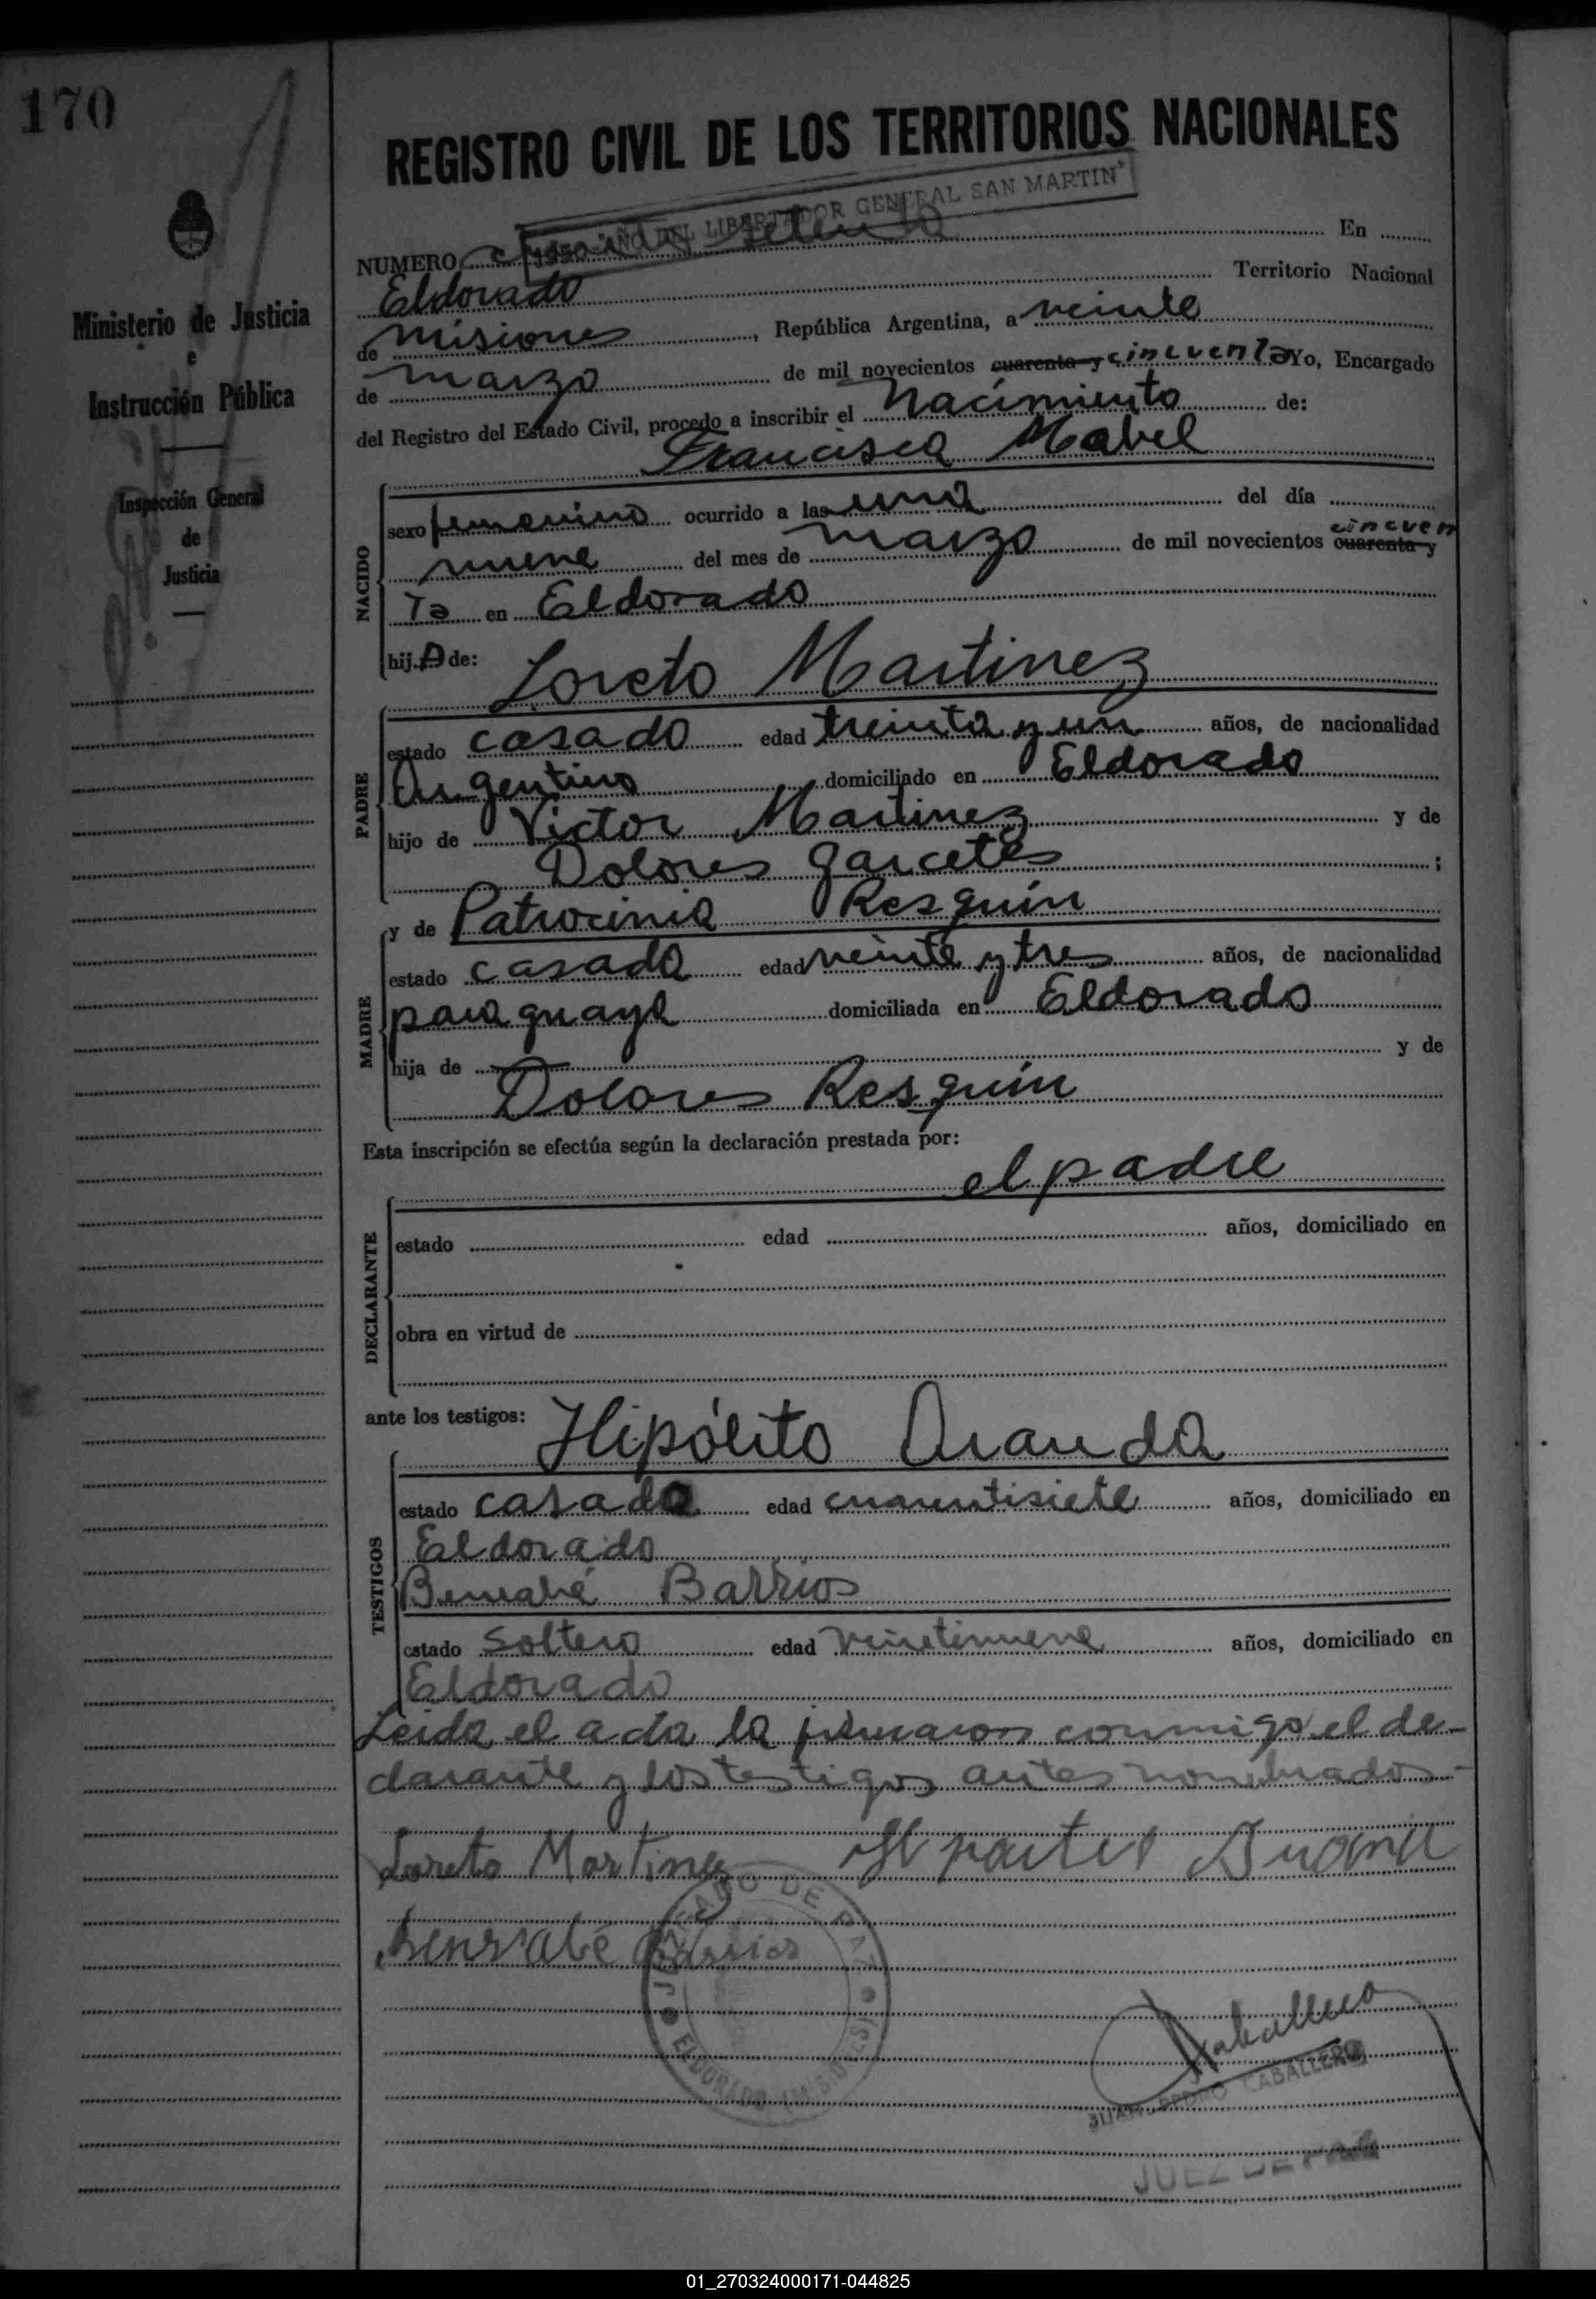 170
REGISTRO CIVIL DE LOS TERRITORIOS NACIONALES
1950 "AÑO DEL LIBERTADOR GENERAL SAN MARTIN"
NUMERO setenta En
Eldorado Territorio Nacional
de Misiones, República Argentina, a veinte
de marzo de mil novecientos cuarenta y cincuenta Yo, Encargado
del Registro del Estado Civil, procedo a inscribir el Nacimiento de:
Francisca Mabel
Ministerio de Justicia
e
Instrucción Pública
Inspección General
de
Justicia
NACIDO
sexo femenino ocurrido a las una del día
nueve del mes de marzo de mil novecientos cuarenta y cincuen
ta en Eldorado
hija de: Loreto Martinez
PADRE
estado casado edad treinta y un años, de nacionalidad
Argentino domiciliado en Eldorado
hijo de Victor Martinez y de
Dolores Garcete ;
y de Patrocinia Resquin
MADRE
estado casada edad veinte y tres años, de nacionalidad
paraguaya domiciliada en Eldorado
hija de y de
Dolores Resquin
Esta inscripción se efectúa según la declaración prestada por:
el padre
DECLARANTE
estado edad años, domiciliado en
obra en virtud de
ante los testigos: Hipólito Aranda
TESTIGOS
estado casado edad cuarentisiete años, domiciliado en
Eldorado
Bernabé Barrios
estado soltero edad veintinueve años, domiciliado en
Eldorado
Leida el acta la firmaron conmigo el de-
clarante y los testigos antes nombrados-
Loreto Martinez
Bernabé Barrios
JUZGADO DE PAZ
ELDORADO (MISIONES)
JUAN PEDRO CABALLERO
JUEZ DE PAZ
01_270324000171-044825